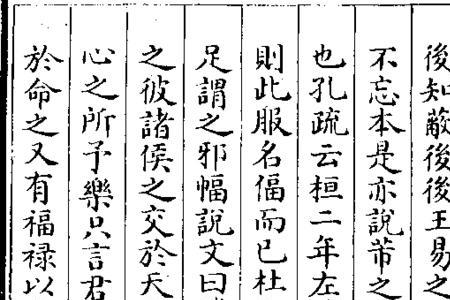 後知蔽後後王易之
不忘本是亦說芾之
也孔疏云桓二年左
則此服名偪而已杜
足謂之邪幅說文曰
之彼諸侯之交於天
心之所予樂只言君
於命之又有福禄以